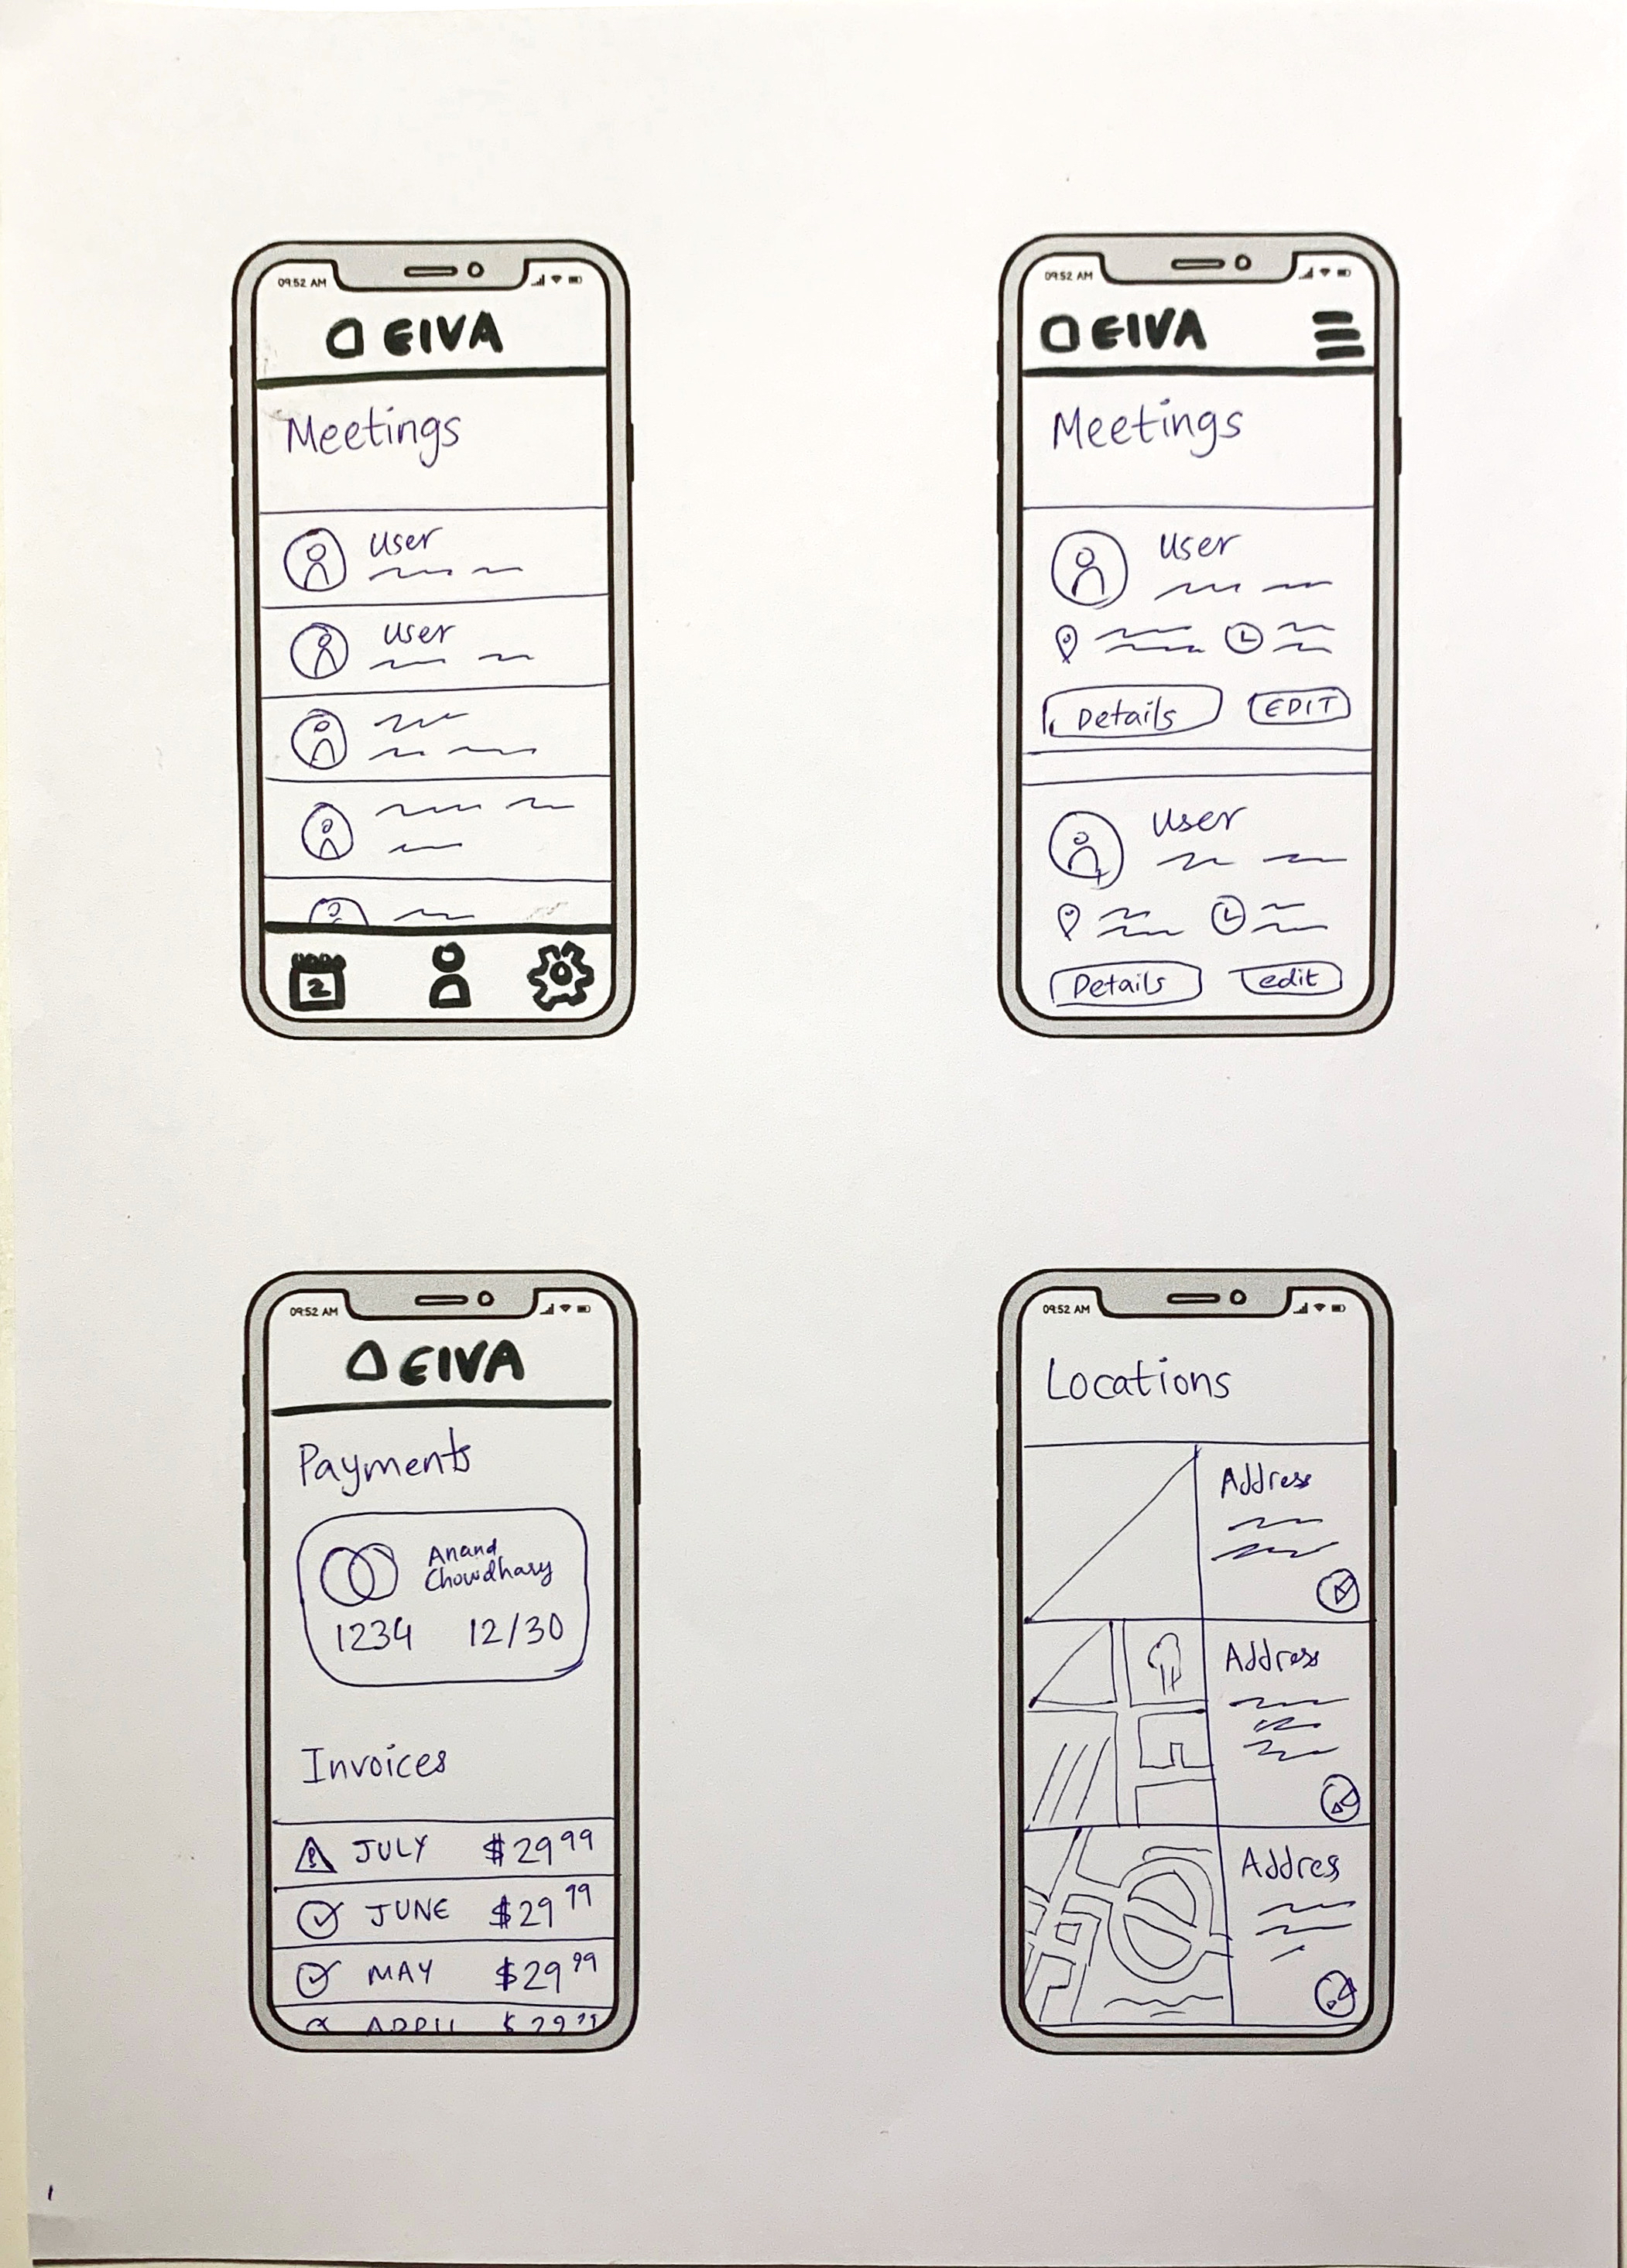 09:52 AM
EIVA
Meetings
User
User
2
09:52 AM
EIVA
Meetings
User
Details
EDIT
User
Details
edit
09:52 AM
EIVA
Payments
Anand
Chowdhary
1234 12/30
Invoices
JULY $29.99
JUNE $29.99
MAY $29.99
APRIL $29.99
09:52 AM
Locations
Address
Address
Addres